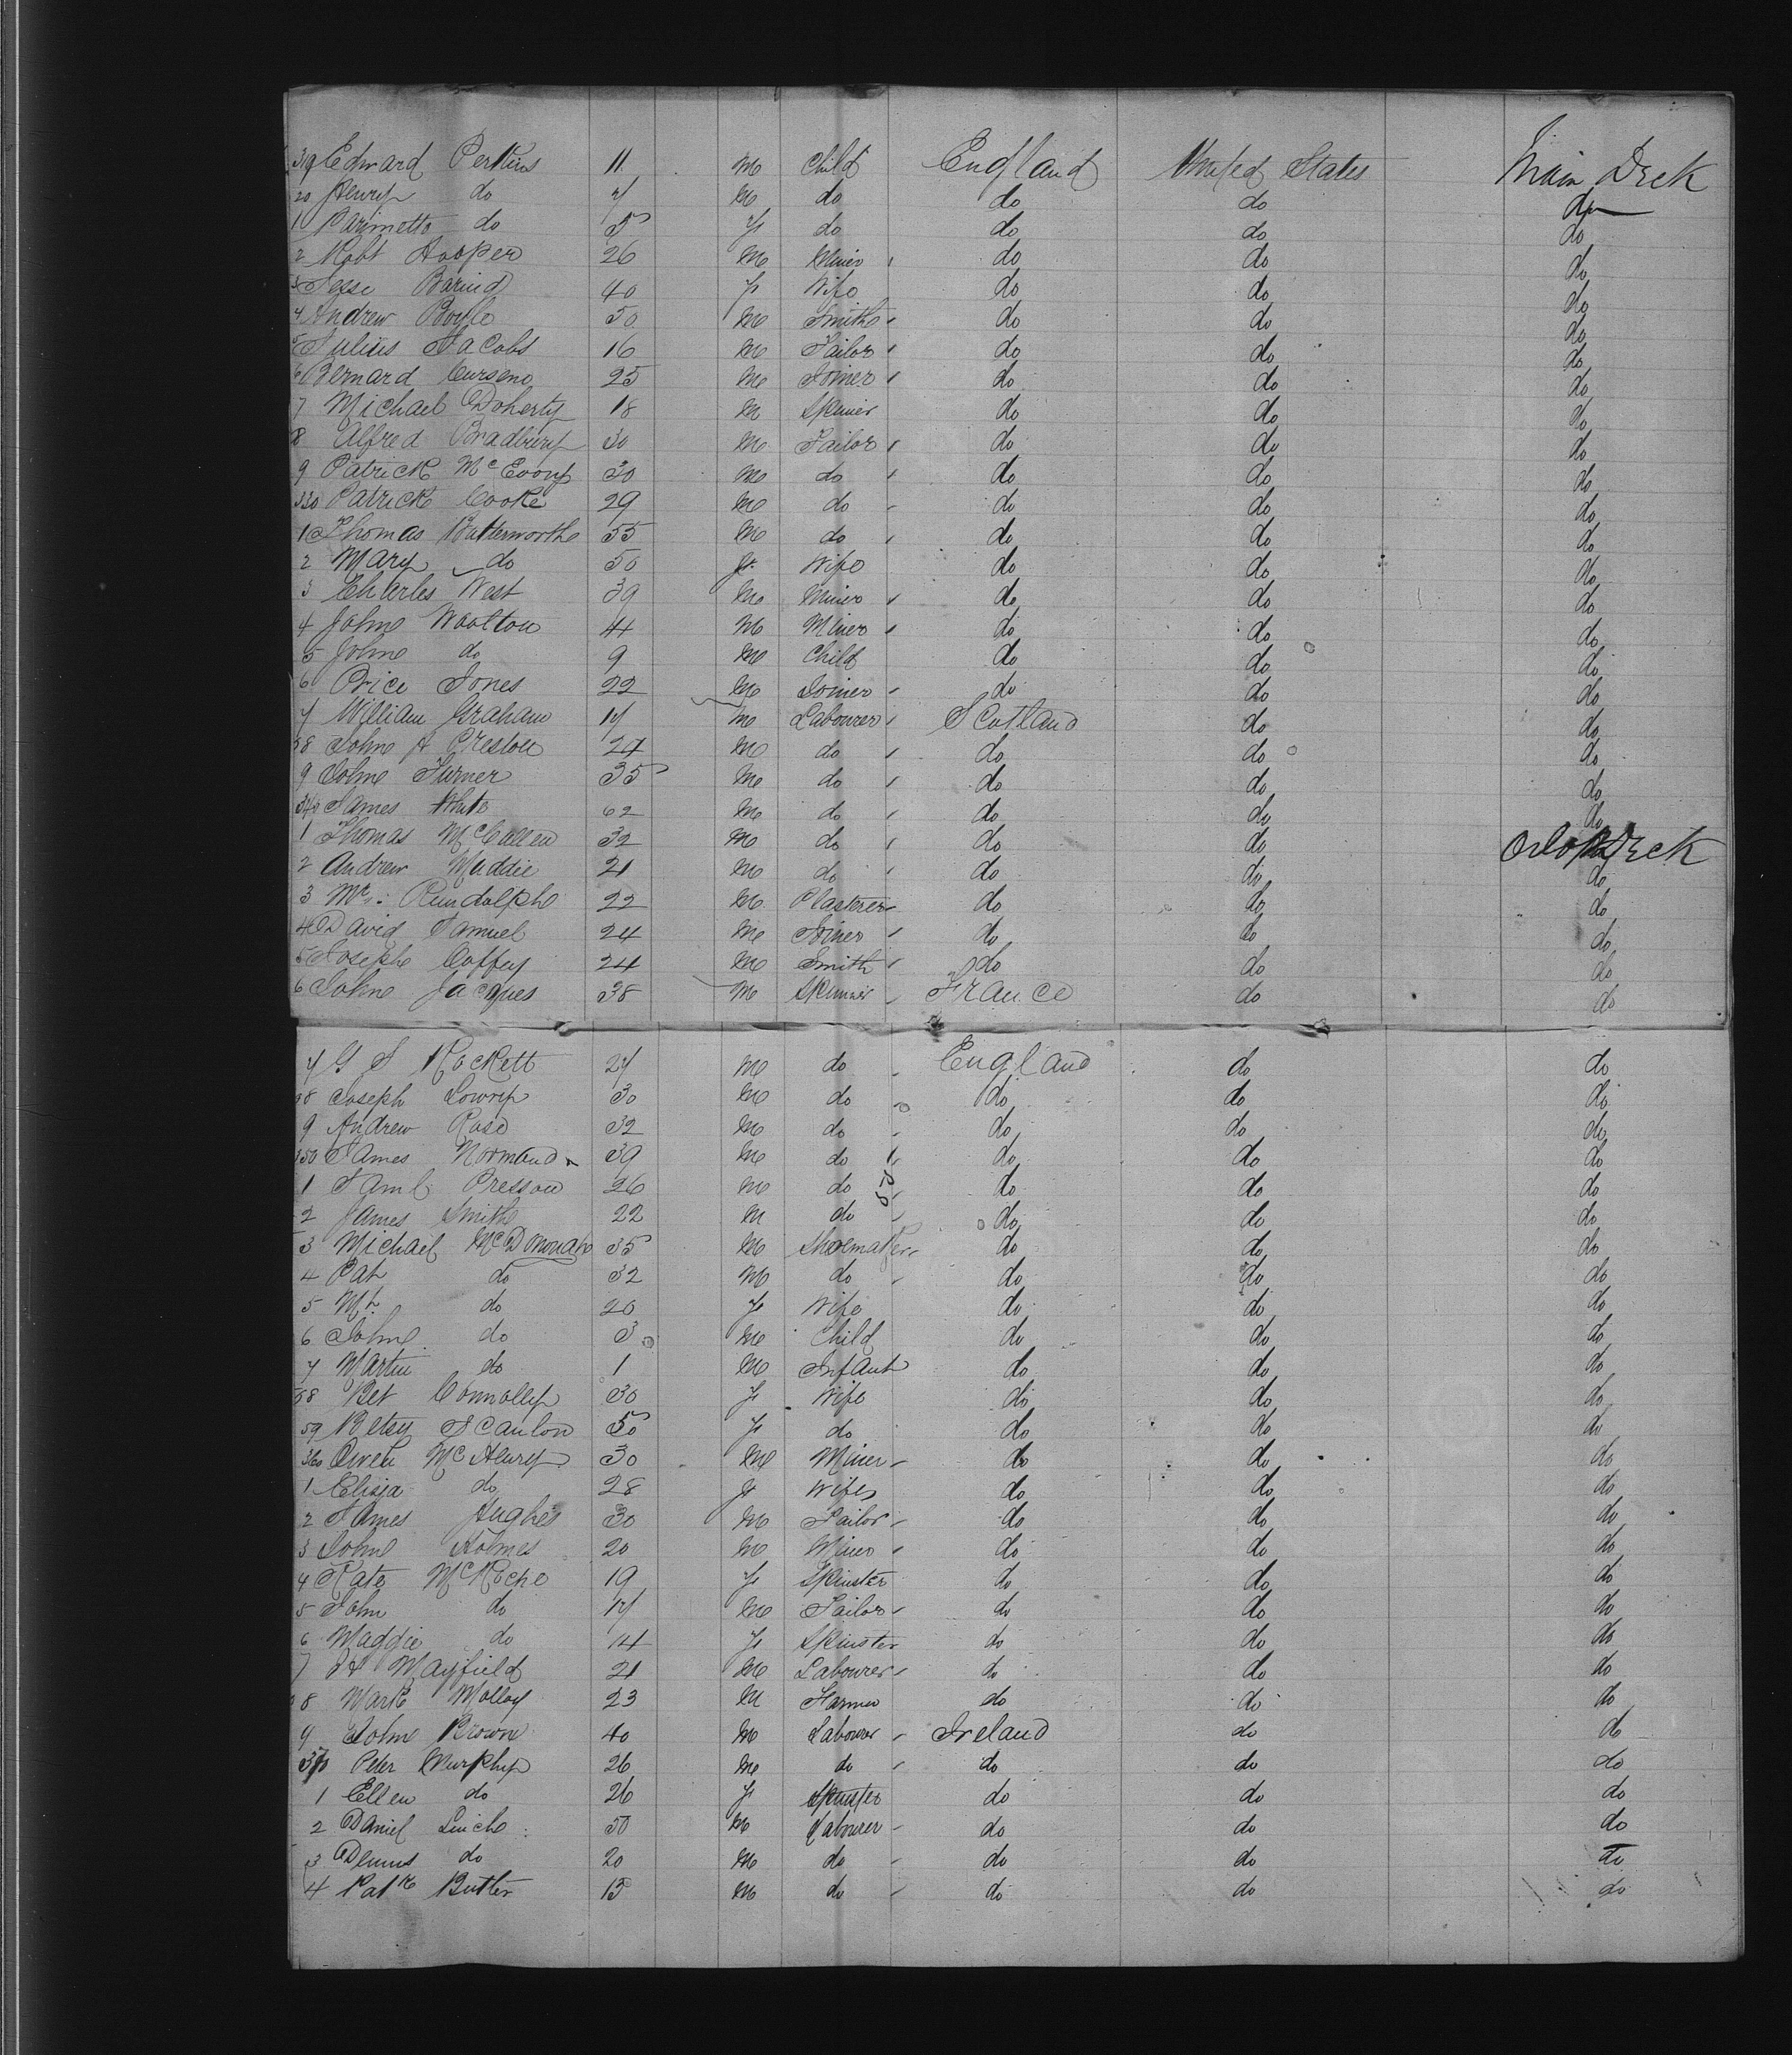 319 Edward Perkins 11 M Child England United States Main Deck
20 Henry do 7 M do do do do
1 do 5 F do do do do
2 Robt Hooper 26 M Miner do do do
3 Jesse 40 F Wife do do do
4 Andrew Boyle 50 M Smith do do do
5 Julius Jacobs 16 M Tailor do do do
6 Bernard 25 M Joiner do do do
7 Michael Doherty 18 M do do do
8 Alfred Bradbury 30 M Tailor do do do
9 Patrick McEvoy 30 M do do do do
330 Patrick Cooke 29 M do do do do
1 Thomas Butterworth 55 M do do do do
2 Mary do 50 F Wife do do do
3 Charles West 39 M Miner do do do
4 John Woolton 41 M Miner do do do
5 John do 9 M Child do do do
6 Price Jones 22 M Joiner do do do
7 William Graham 17 M Labourer Scotland do do
38 John A Preston 27 M do do do do
9 John Turner 35 M do do do do
340 James White 62 M do do do do
1 Thomas McCallen 32 M do do do Orlop Deck
2 Andrew Muddie 21 M do do do do
3 Mr. Rundolph 22 M Plasterer do do do
4 David Samuel 24 M Joiner do do do
5 Joseph Coffey 24 M Smith do do do
6 John Jacques 38 M France do do
7 G S Rockett 27 M do England do do
48 Joseph Lowry 30 M do do do do
9 Andrew Rose 32 M do do do do
350 James Normand 39 M do do do do
1 Saml Presson 26 M do do do do
2 James Smith 22 M do do do do
3 Michael McDonouah 35 M Shoemaker do do do
4 Pat do 32 M do do do do
5 do 20 F Wife do do do
6 John do 3 M Child do do do
7 Martin do 1 M Infant do do do
58 Bet Connolly 30 F Wife do do do
59 Betsy Scanlon 50 F do do do do
360 Owen McHenry 30 M Miner do do do
1 Elisja do 28 F Wife do do do
2 James Hughes 30 M Tailor do do do
3 John Holmes 20 M Miner do do do
4 Kate 19 F Spinster do do do
5 John do 17 M Tailor do do do
6 Maggie do 14 F Spinster do do do
7 Mayfield 21 M Labourer do do do
8 Mark Molloy 23 M Farmer do do do
9 John Brown 40 M Labourer Ireland do do
370 Peter Murphy 26 M do do do do
1 Ellen do 26 F Spinster do do do
2 Daniel Linch 50 M Labourer do do do
3 Dennis do 20 M do do do do
4 Patk Butler 15 M do do do do